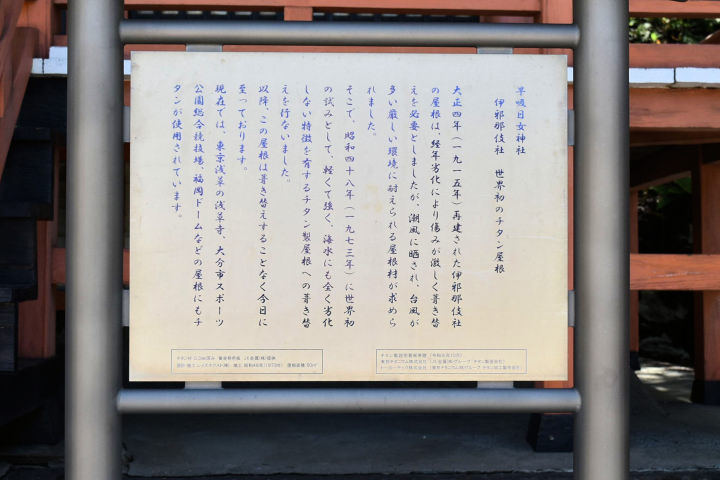 早吸日女神社
伊邪那伎社　世界初のチタン屋根
大正四年（一九一五年）再建された伊邪那伎社
の屋根は、経年劣化により傷みが激しく葺き替
えを必要としましたが、潮風に晒され、台風が
多い厳しい環境に耐えられる屋根材が求めら
れました。
そこで、昭和四十八年（一九七三年）に世界初
の試みとして、軽くて強く、海水にも全く劣化
しない特徴を有するチタン製屋根への葺き替
えを行ないました。
以降、この屋根は葺き替えすることなく今日に
至っております。
現在では、東京浅草の浅草寺、大分市スポーツ
公園総合競技場、福岡ドームなどの屋根にもチ
タンが使用されています。